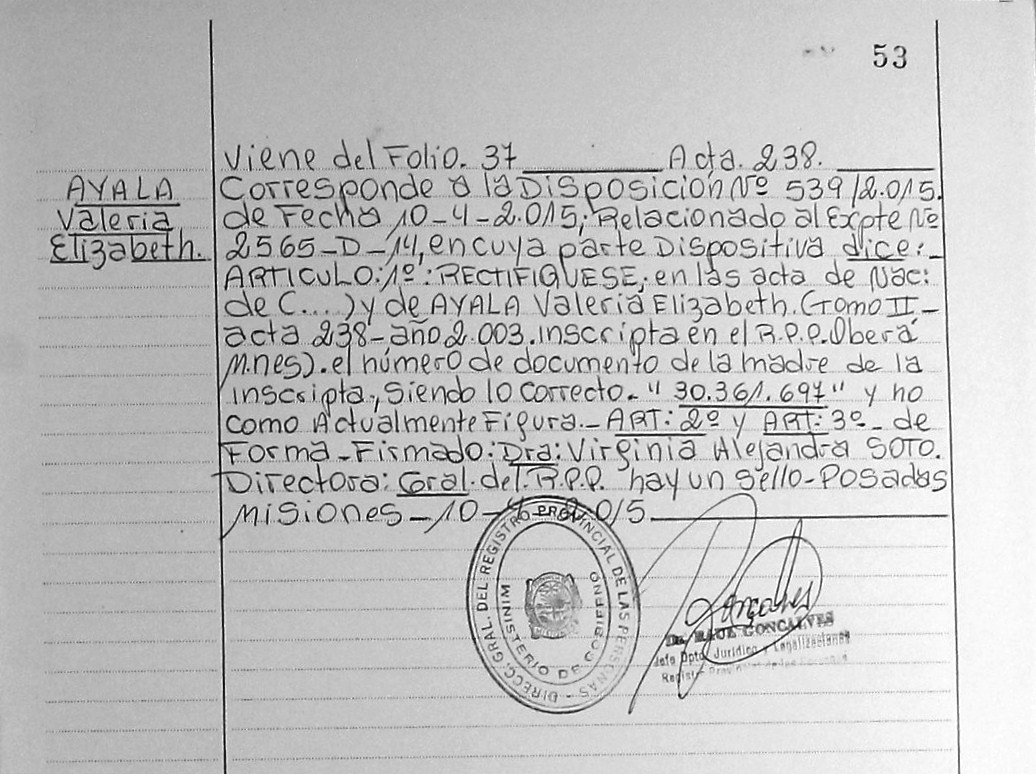 53
Viene del Folio. 37 Acta. 238.
AYALA
Valeria
Elizabeth.
Corresponde a la Disposición Nº 539/2.015.
de Fecha 10-4-2.015; Relacionado al Expte Nº
2565-D-14, en cuya parte Dispositiva dice:-
ARTICULO:1º: RECTIFIQUESE, en las acta de Nac:
de C....) y de AYALA Valeria Elizabeth. (Tomo II-
acta 238-año 2.003. inscripta en el R.P.P. Oberá
M.nes). el número de documento de la madre de la
inscripta, siendo lo correcto. "30.361.697" y no
como Actualmente Figura.- ART: 2º y ART: 3º- de
Forma-Firmado: Dra: Virginia Alejandra SOTO.
Directora: Gral. del R.P.P. hay un sello-Posadas
Misiones-10-4-2015
DIRECC. GRAL. DEL REGISTRO PROVINCIAL DE LAS PERSONAS -
MINISTERIO DE GOBIERNO
Goncalves
Dr. RAUL GONCALVES
Jefe Dpto. Jurídico y Legalizaciones
Registro Provincial de las Personas